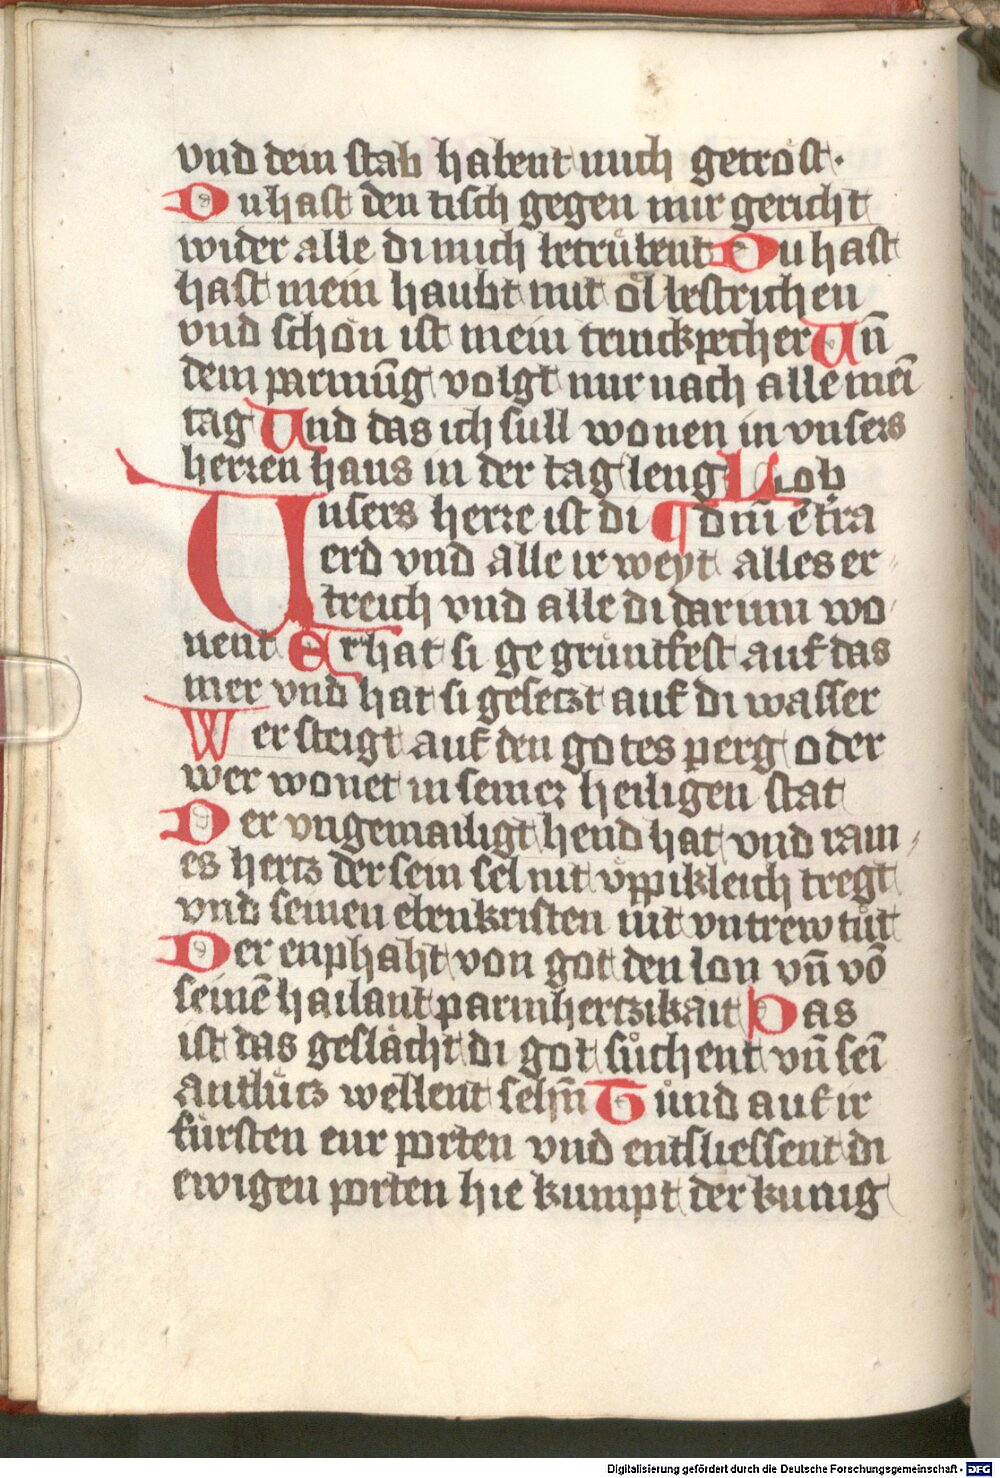 vnd dem stab habent mich getröst.
Du hast den tisch gegen mir gericht
wider alle di mich betrübent Du hast
hast mein haubt mit öl bestrichen
vnd schön ist mein trinckpecher Un̄
dem parmūg volgt mir nach alle meī
tag Und das ich sull wonen in vnsers
herren haus in der tag leng Lob
Unsers herre ist di ¶ dnī ē tr̄a
erd vnd alle ir weyt alles er
treich vnd alle di darinn wo
nent Er hat si gegruntfest auf das
mer vnd hat si gesetzt auf di wasser
Wer steigt auf den gotes perg oder
wer wonet in seiner heiligen stat
Der vngemailigt hend hat vnd rain
es hertz der sein sel nit vͦppikleich tregt
vnd seinen ebenkristen nit vntrew tut
Der enphaht von got den lon vn̄ vō
seinē hailant parmhertzikait Das
ist das geslächt di got suͦchent vn̄ seī
antlütz wellent sehn̄ Tuͦnd auf ir
fürsten eur porten vnd entsliessent di
ewigen porten hie kumpt der kunig
Digitalisierung gefördert durch die Deutsche Forschungsgemeinschaft - DFG